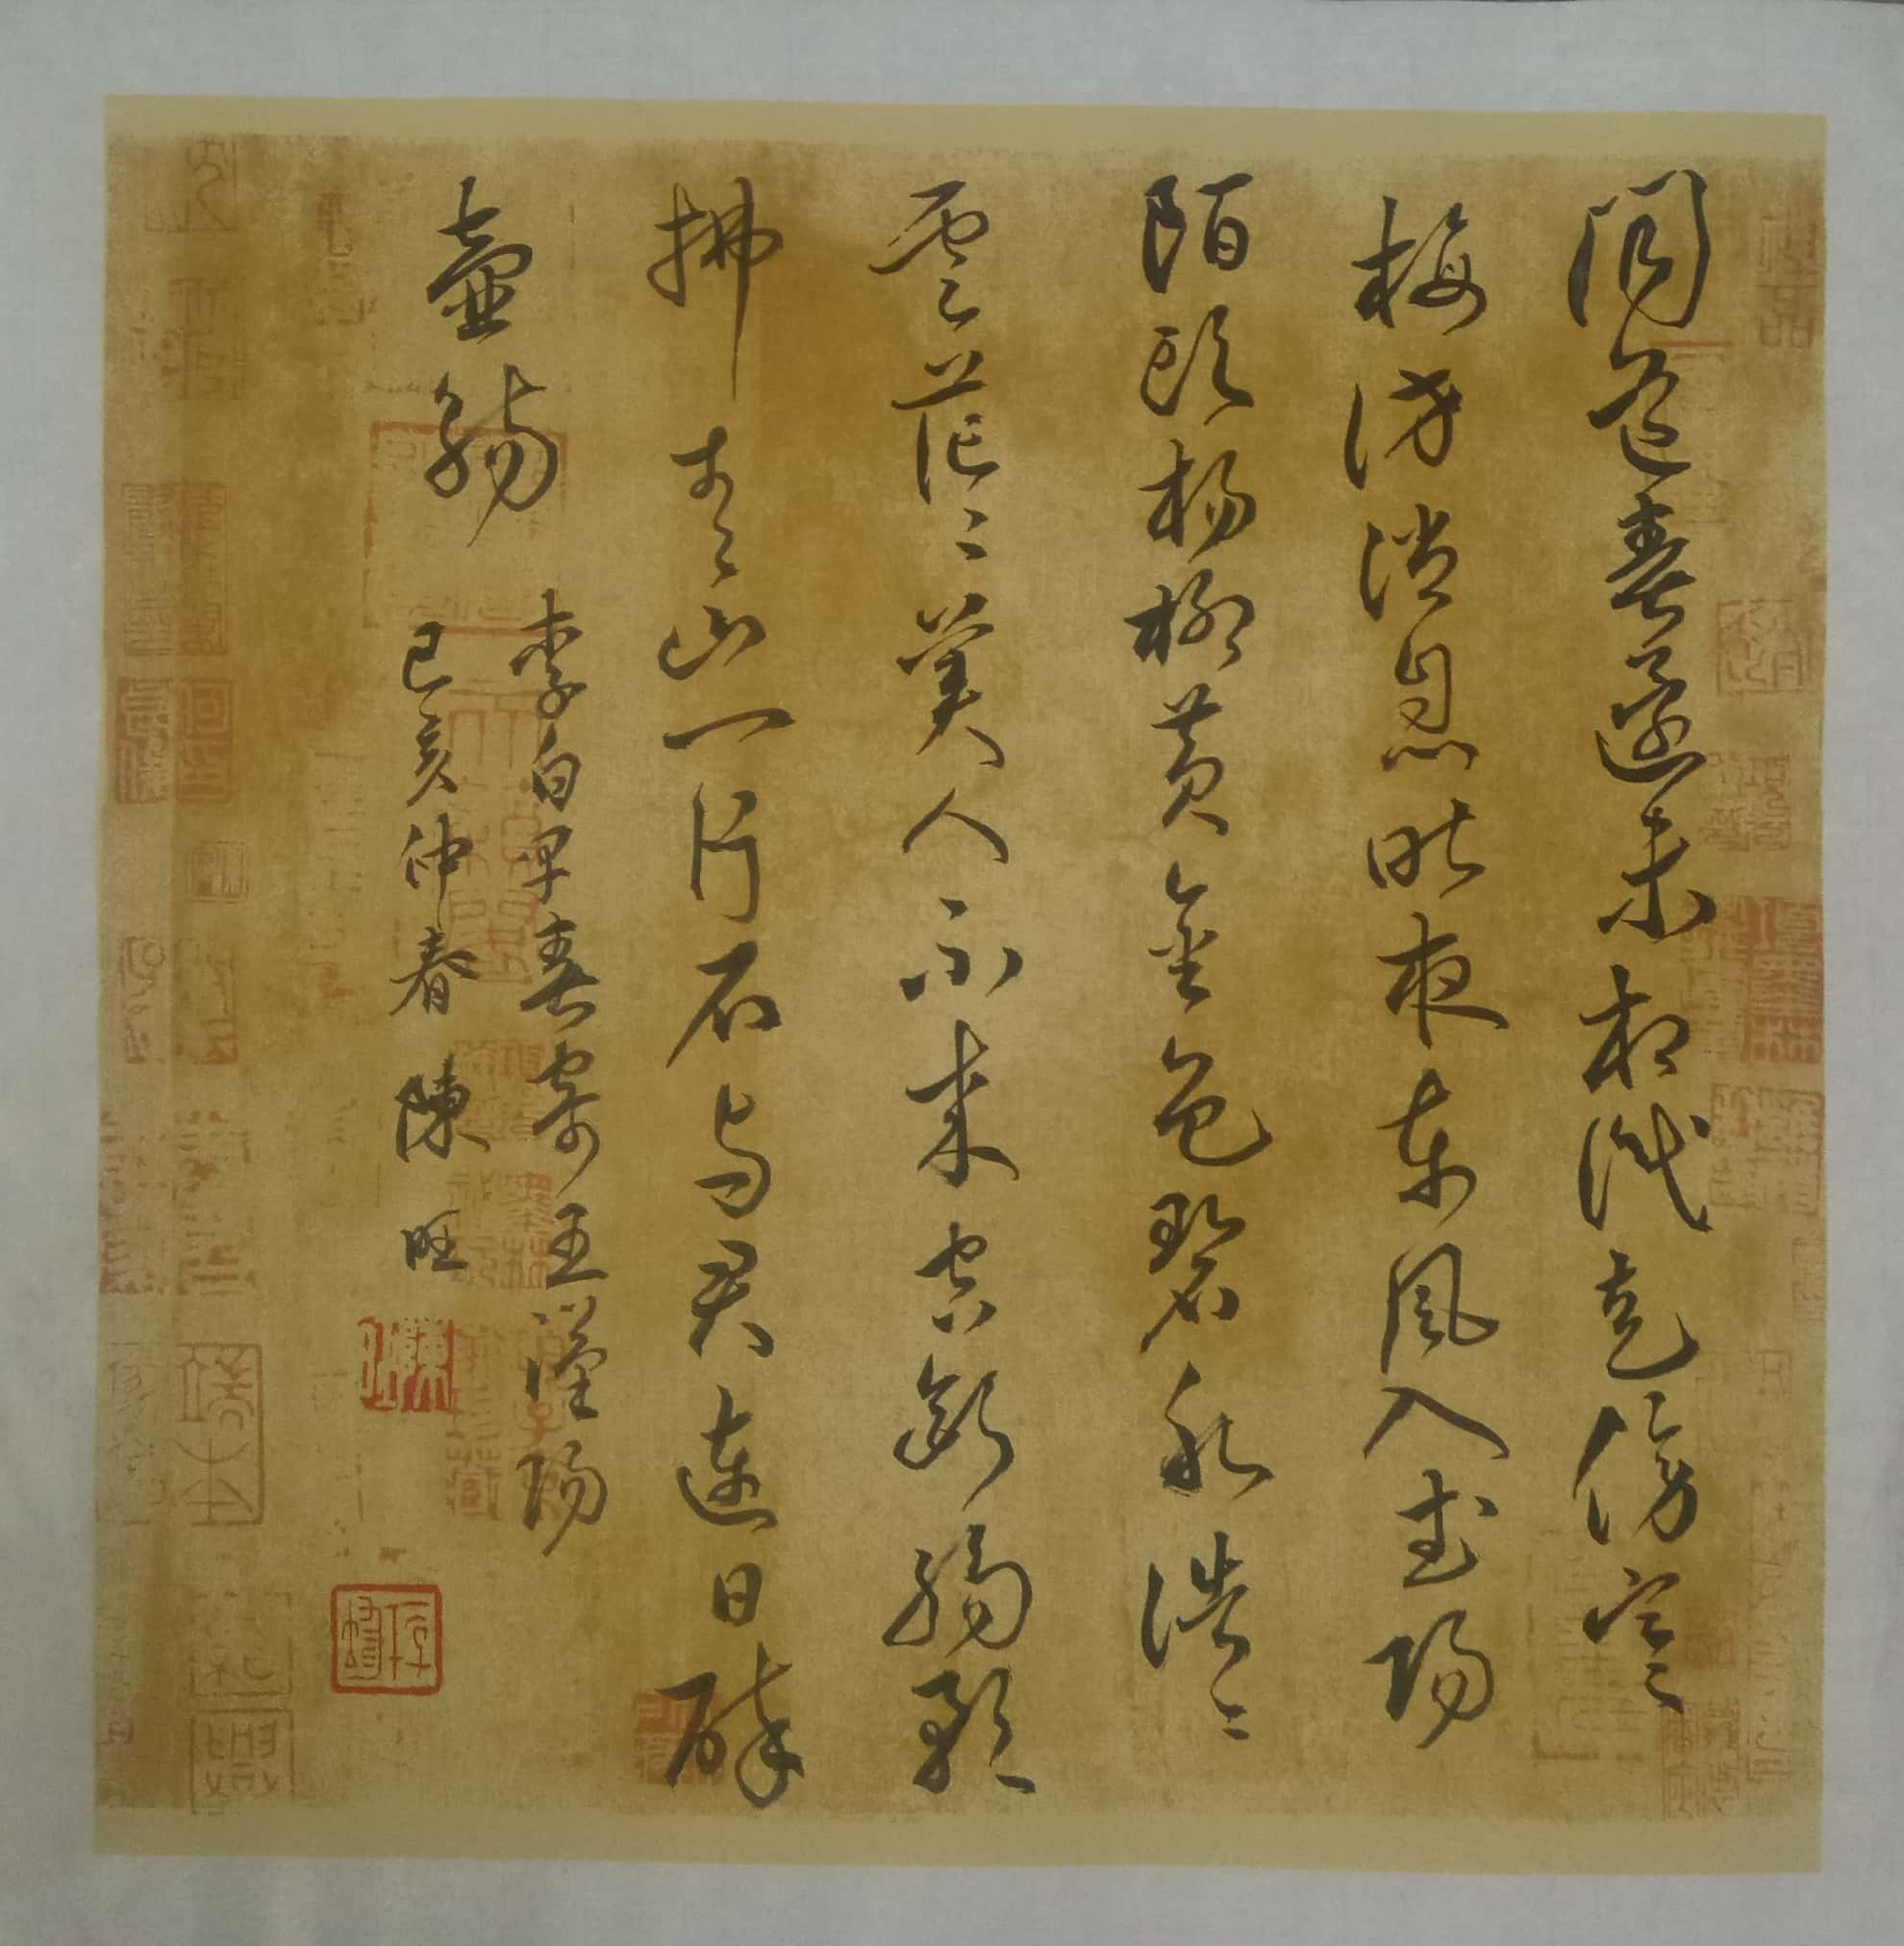 聞道春還未相識走傍寒
梅訪消息昨夜東風入武陽
陌頭楊柳黃金色碧水浩〻
雲茫〻美人不來空斷腸預
拂青山一片石与君連日醉
壺觴
李白早春寄王漢陽
己亥仲春 陳旺